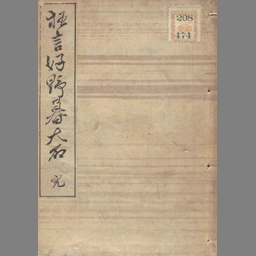 狂言好野暮大名 完
208
474